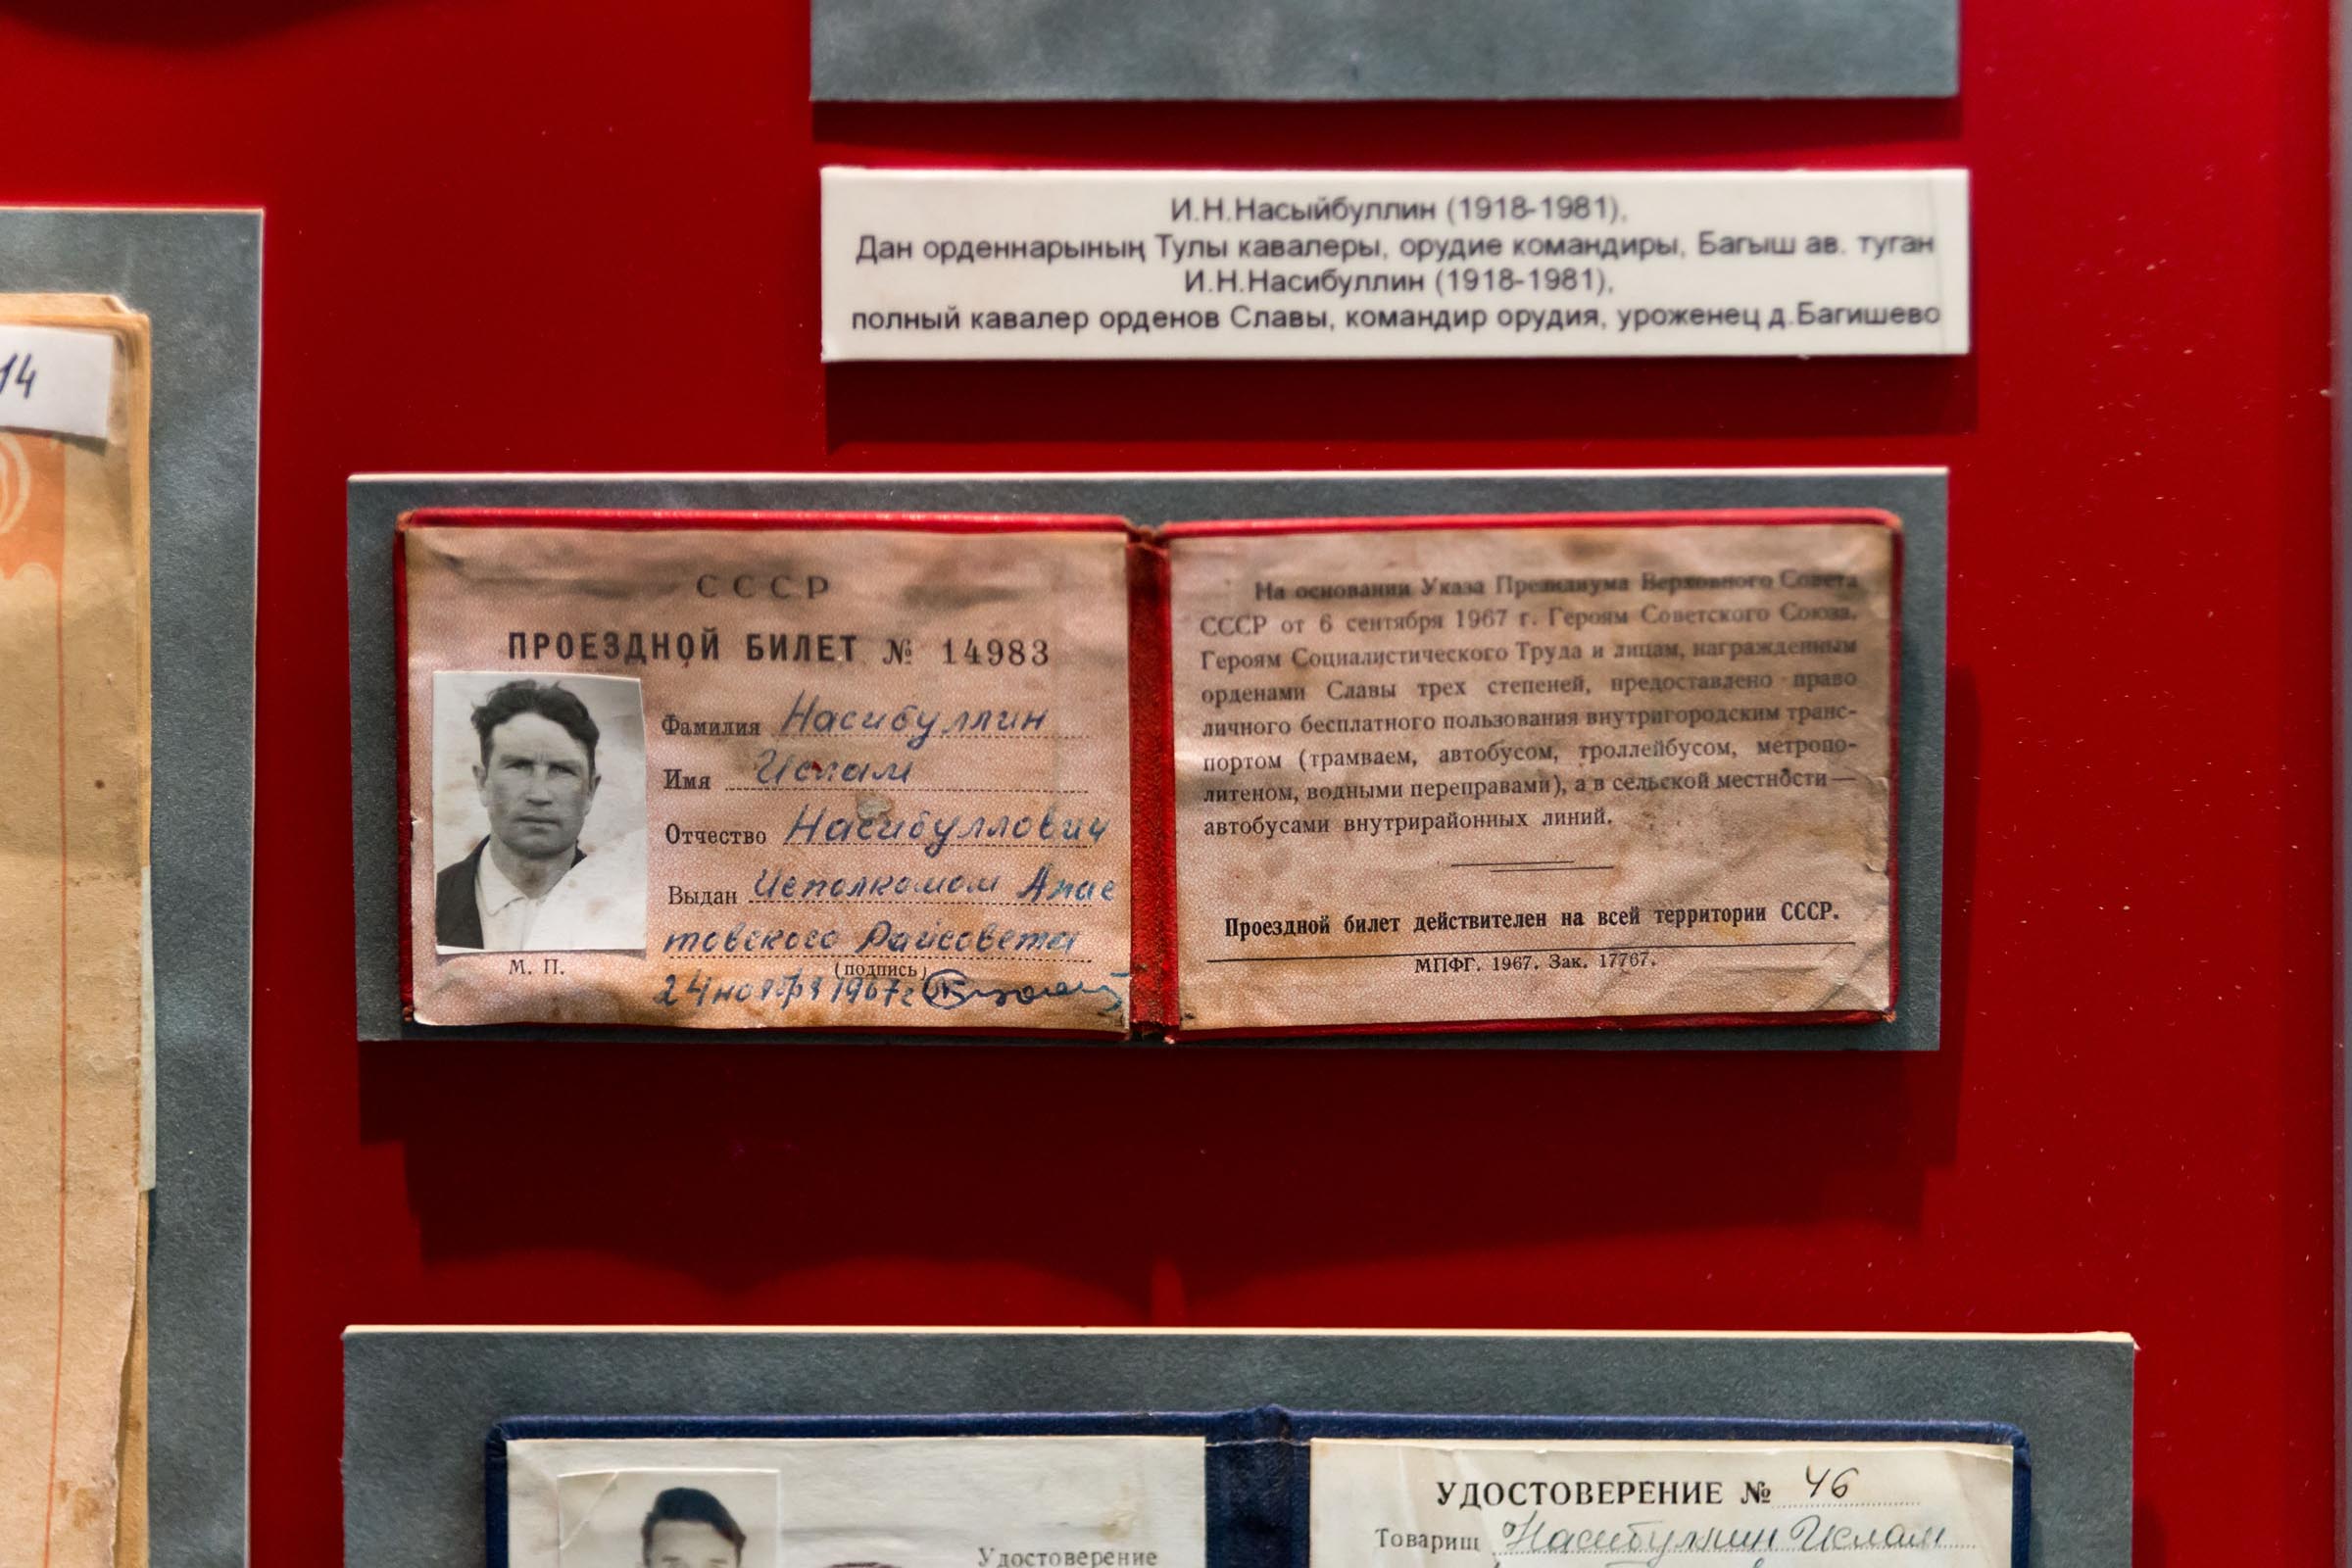 14
И.Н.Насыйбуллин (1918-1981),
Дан орденнарының Тулы кавалеры, орудие командиры, Багыш ав. туган
И.Н.Насибуллин (1918-1981),
полный кавалер орденов Славы, командир орудия, уроженец д.Багишево
СССР
ПРОЕЗДНОЙ БИЛЕТ № 14983
Фамилия Насибуллин
Имя Ислам
Отчество Насибуллович
Выдан Исполкомом Апас
товского Райсовета
М. П.
(подпись)
24 ноября 1967г
На основании Указа Президиума Верховного Совета
СССР от 6 сентября 1967 г. Героям Советского Союза,
Героям Социалистического Труда и лицам, награжденным
орденами Славы трех степеней, предоставлено право
личного бесплатного пользования внутригородским транс-
портом (трамваем, автобусом, троллейбусом, метропо-
литеном, водными переправами), а в сельской местности —
автобусами внутрирайонных линий.
Проездной билет действителен на всей территории СССР.
МПФГ. 1967. Зак. 17767.
Удостоверение
УДОСТОВЕРЕНИЕ № 46
Товарищ Насибуллин Ислам